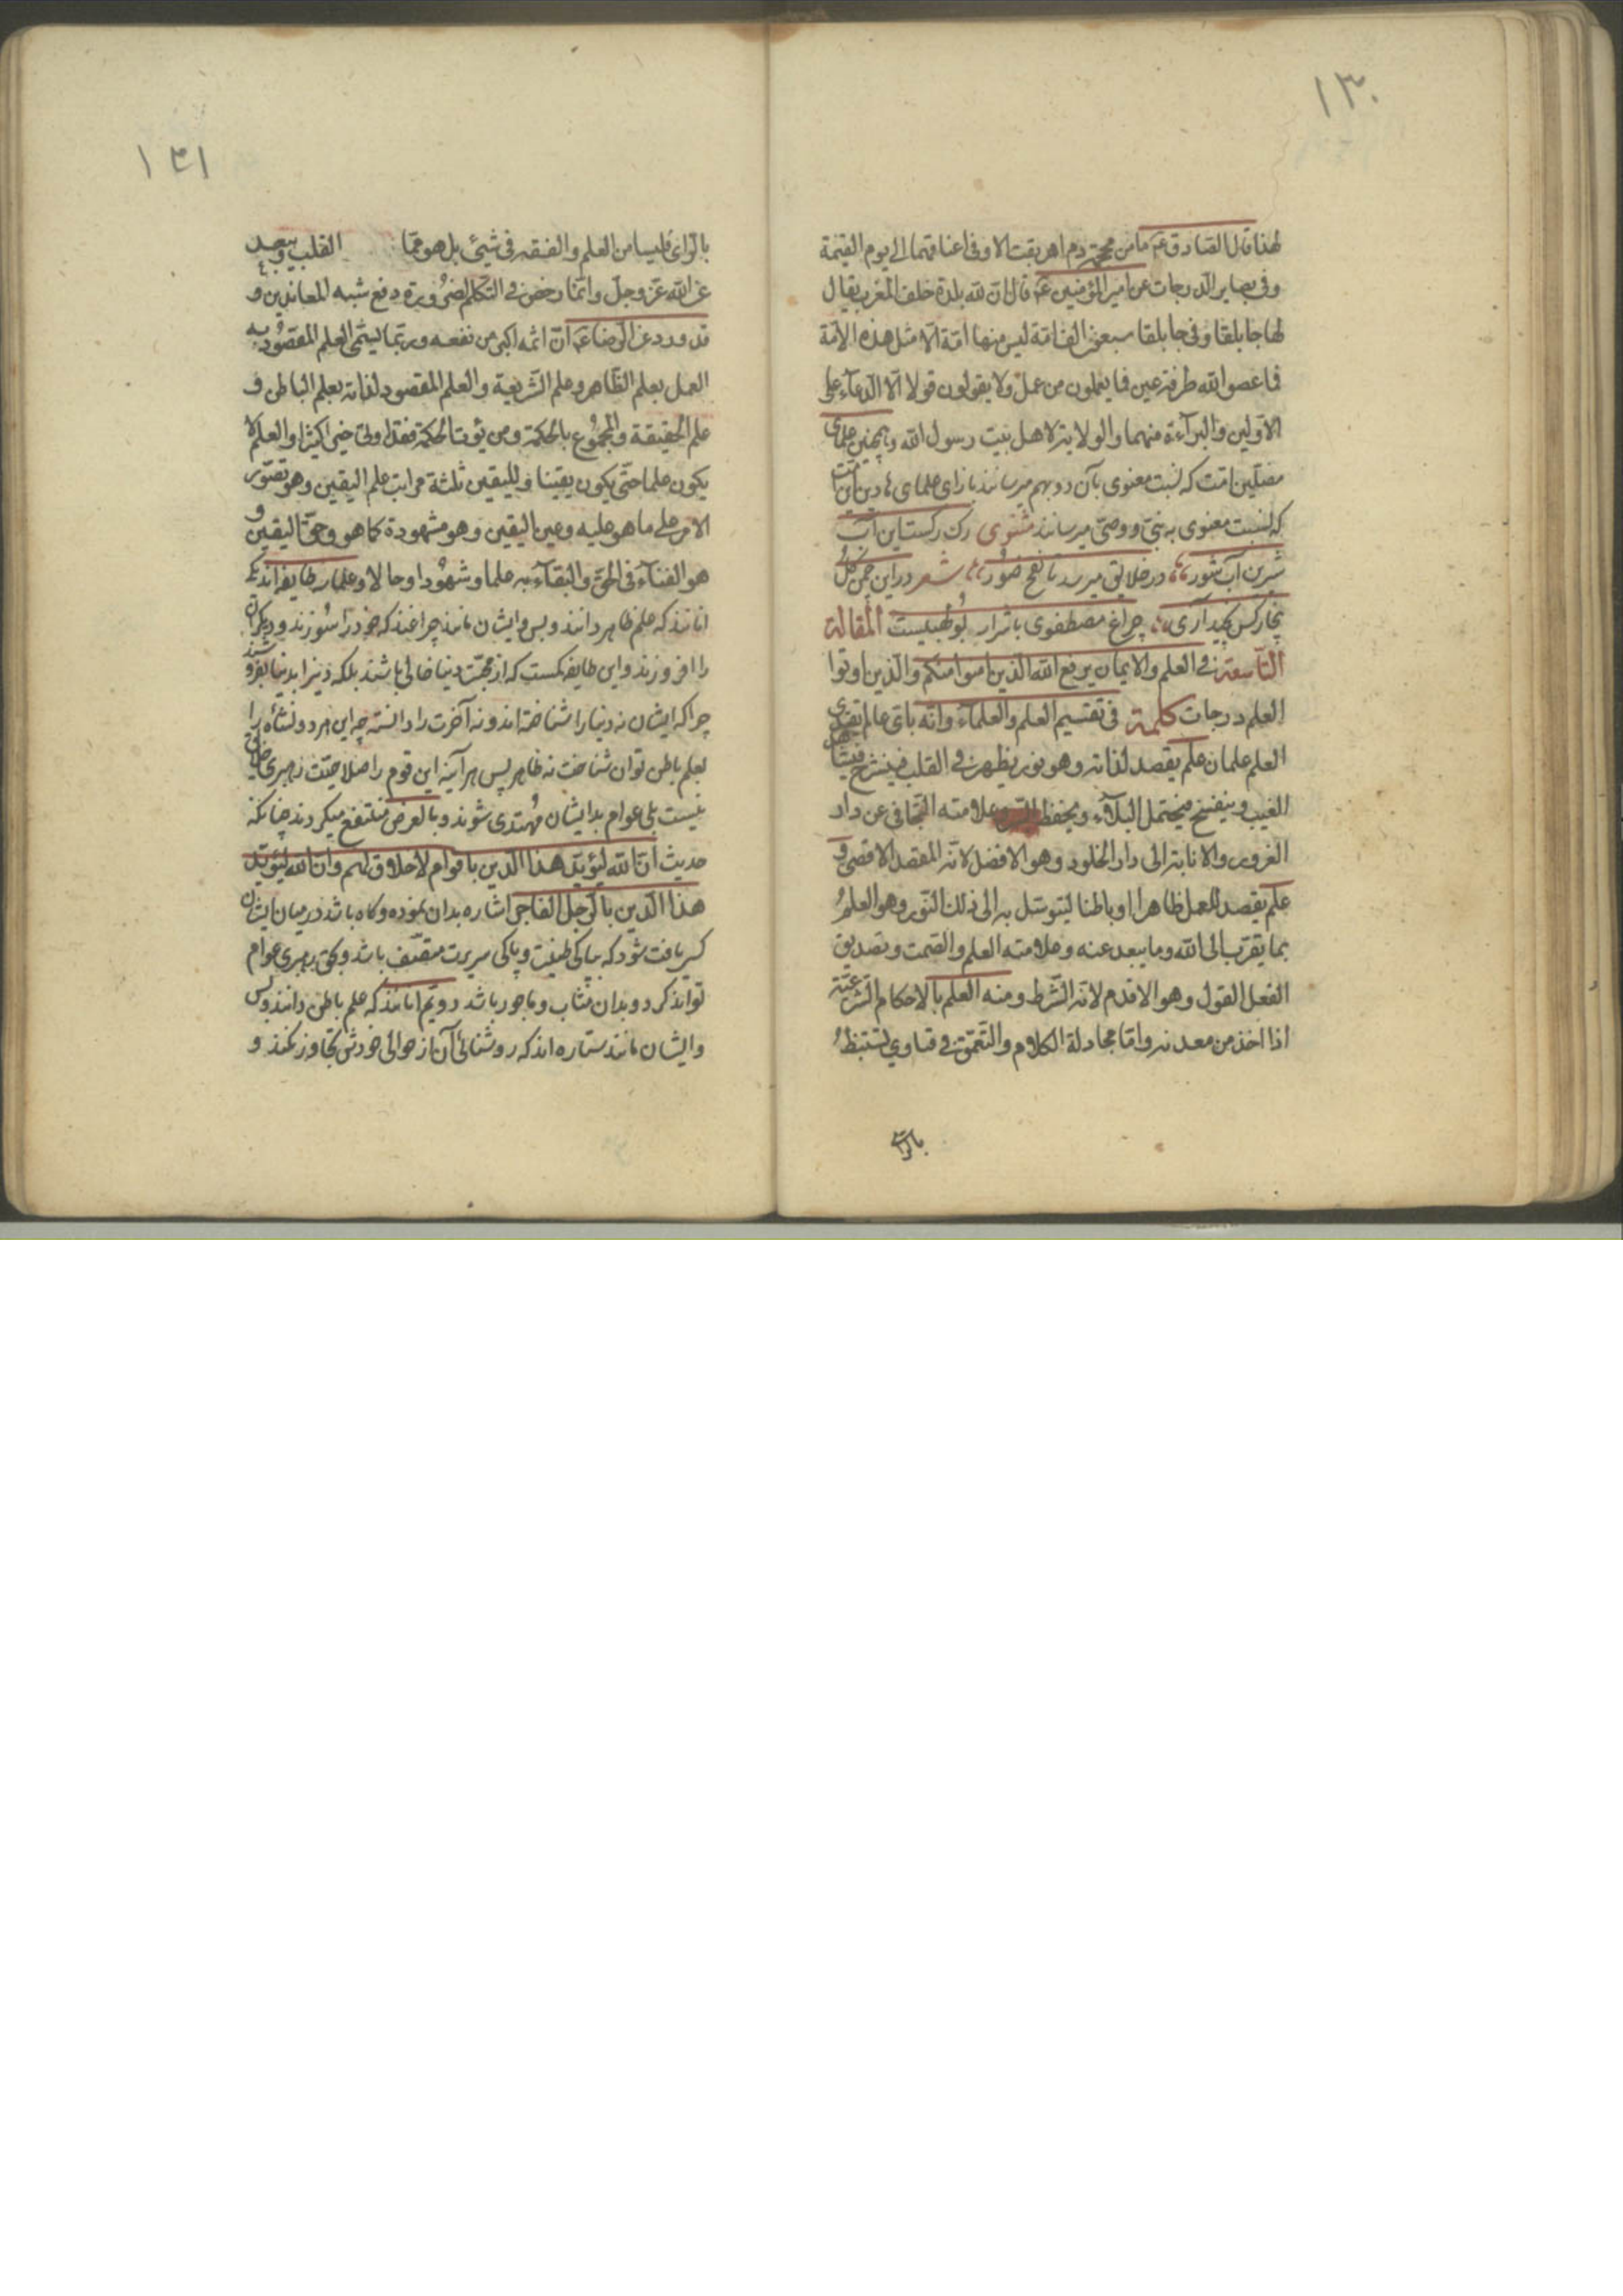 ١٣٠
لهذا قال الصادق عم ما من محجمة دم اهريقت الا وفی اعناقهما الی یوم القیمة
وفی بصایر الدرجات عن امیر المؤمنین عم قال ان لله بلدة خلف المغرب یقال
لها جابلقا وفی جابلقا سبعون الف امة لیس منها امة الا مثل هذه الامة
فما عصوا الله طرفة عین فما یعملون من عمل ولا یقولون قولا الا الدعاء علی
الاولین والبراءة منهما والولایة لاهل بیت رسول الله وهمچنین علمای
مضلین امت که نسبت معنوی بآن دو بهم میرسانند بازای علمای هادین امت
که نسبت معنوی به نبی و وصی میرسانند مثنوی رک رکست این آب
شیرین آب شور در خلایق میرود تا نفخ صور شعر در این چمن گل
بیخار کس نچید آری چراغ مصطفوی با شرار بولهبیست المقالة
التاسعة فی العلم والایمان یرفع الله الذین امنوا منکم والذین اوتوا
العلم درجات كلمة فی تقسیم العلم والعلماء وانه بای عالم یقتدی
العلم علمان علم یقصد لذاته وهو نور یظهر فی القلب فینشرح فیشاهد
الغیب وینفسح فیحتمل البلاء ویحفظ السر وعلامته التجافی عن دار
الغرور والانابة الی دار الخلود وهو الافضل لانه المقصد الاقصی و
علم یقصد للعمل ظاهرا او باطنا لیتوسل به الی ذلک النور وهو العلم
بما یقرب الی الله وما یبعد عنه وعلامته العلم والصمت وتصدیق
الفعل القول وهو الاقدم لانه الشرط ومنه العلم بالاحکام الشرعیة
اذا اخذ من معدنه واما مجادلة الکلام والتعمق فی فتاوی تستنبط
بالرای
١٣١
بالرای فلیسا من العلم والفقه فی شیئ بل هو مما القلب ویبعد
عن الله عز وجل وانما رخص فی التکلم لضرورة دفع شبه المعاندین و
قد ورد عن الرضا عم ان اثمه اکبر من نفعه وربما یسمی العلم المقصود به
العمل بعلم الظاهر وعلم الشریعة والعلم المقصود لذاته بعلم الباطن و
علم الحقیقة والمجموع بالحکمة ومن یؤت الحکمة فقد اوتی خیرا کثیرا والعلم لا
یکون علما حتی یکون یقینا وللیقین ثلثة مراتب علم الیقین وهو تصور
الامر علی ما هو علیه وعین الیقین وهو مشهودة کما هو وحق الیقین و
هو الفناء فی الحق والبقاء به علما وشهودا وحالا وعلما سه طایفه اند یکی
انانند که علم ظاهر دانند و بس و ایشان مانند چراغند که خود را سوزند و دیگران
را افروزند و این طایفه کمست که از محبت دنیا خالی باشند بلکه دین را بدنیا بفروشند
چرا که ایشان نه دنیا را شناخته اند و نه آخرت را دانسته چه این هر دو نشأه را
بعلم باطن توان شناخت نه ظاهر پس هر آینه این قوم را صلاحیت رهبری خلایق
نیست بلی عوام بدایشان مهتدی شوند و بالعرض منتفع میکردند چنانکه
حدیث ان الله لیؤید هذا الدین باقوام لا خلاق لهم وان الله لیؤید
هذا الدین بالرجل الفاجر اشاره بدان نموده و کاه باشد در میان ایشان
کسی یافت شود که بپاکی طینت و پاکی سریرت متصف باشد و بحق رهبری عوام
تواند کرد و بدان مثاب و ماجور باشد دویم انانند که علم باطن دانند و بس
و ایشان مانند ستاره اند که روشنائی آن از حوالی خودش تجاوز نکند و